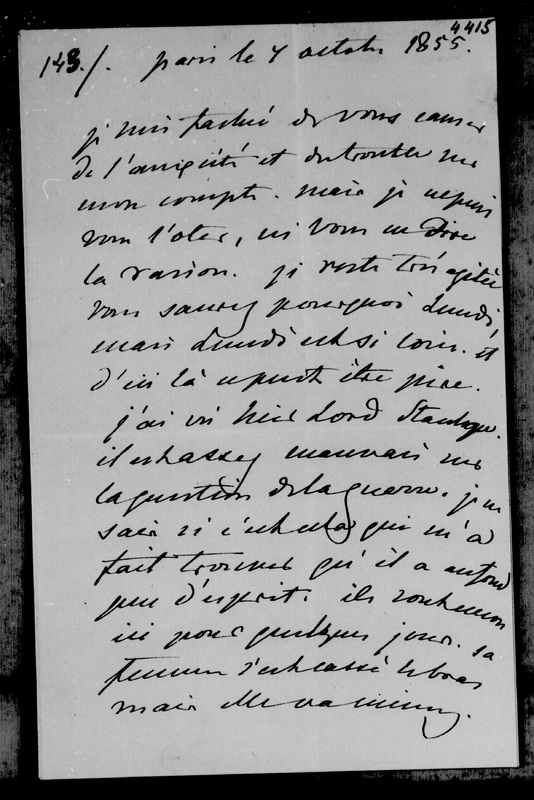 4415
143./. paris le 4 octobre 1855.
je suis fachée de vous causer
de l'anxiété et du trouble sur
mon compte. mais je ne puis
vous l'oter, ni vous en dire
la raison. je reste très agitée
vous saurez pourquoi Lundi,
mais Lundi est si loin. et
d'ici là ce peut être pire.
j'ai vu hier Lord Stanhope.
il est assez mauvais sur
la question de la guerre. je ne
sais si c'est cela qui m'a
fait trouver qu'il a au fond
peu d'esprit. ils sont encore
ici pour quelques jours. sa
femme s'est cassé le bras
mais elle va mieux.